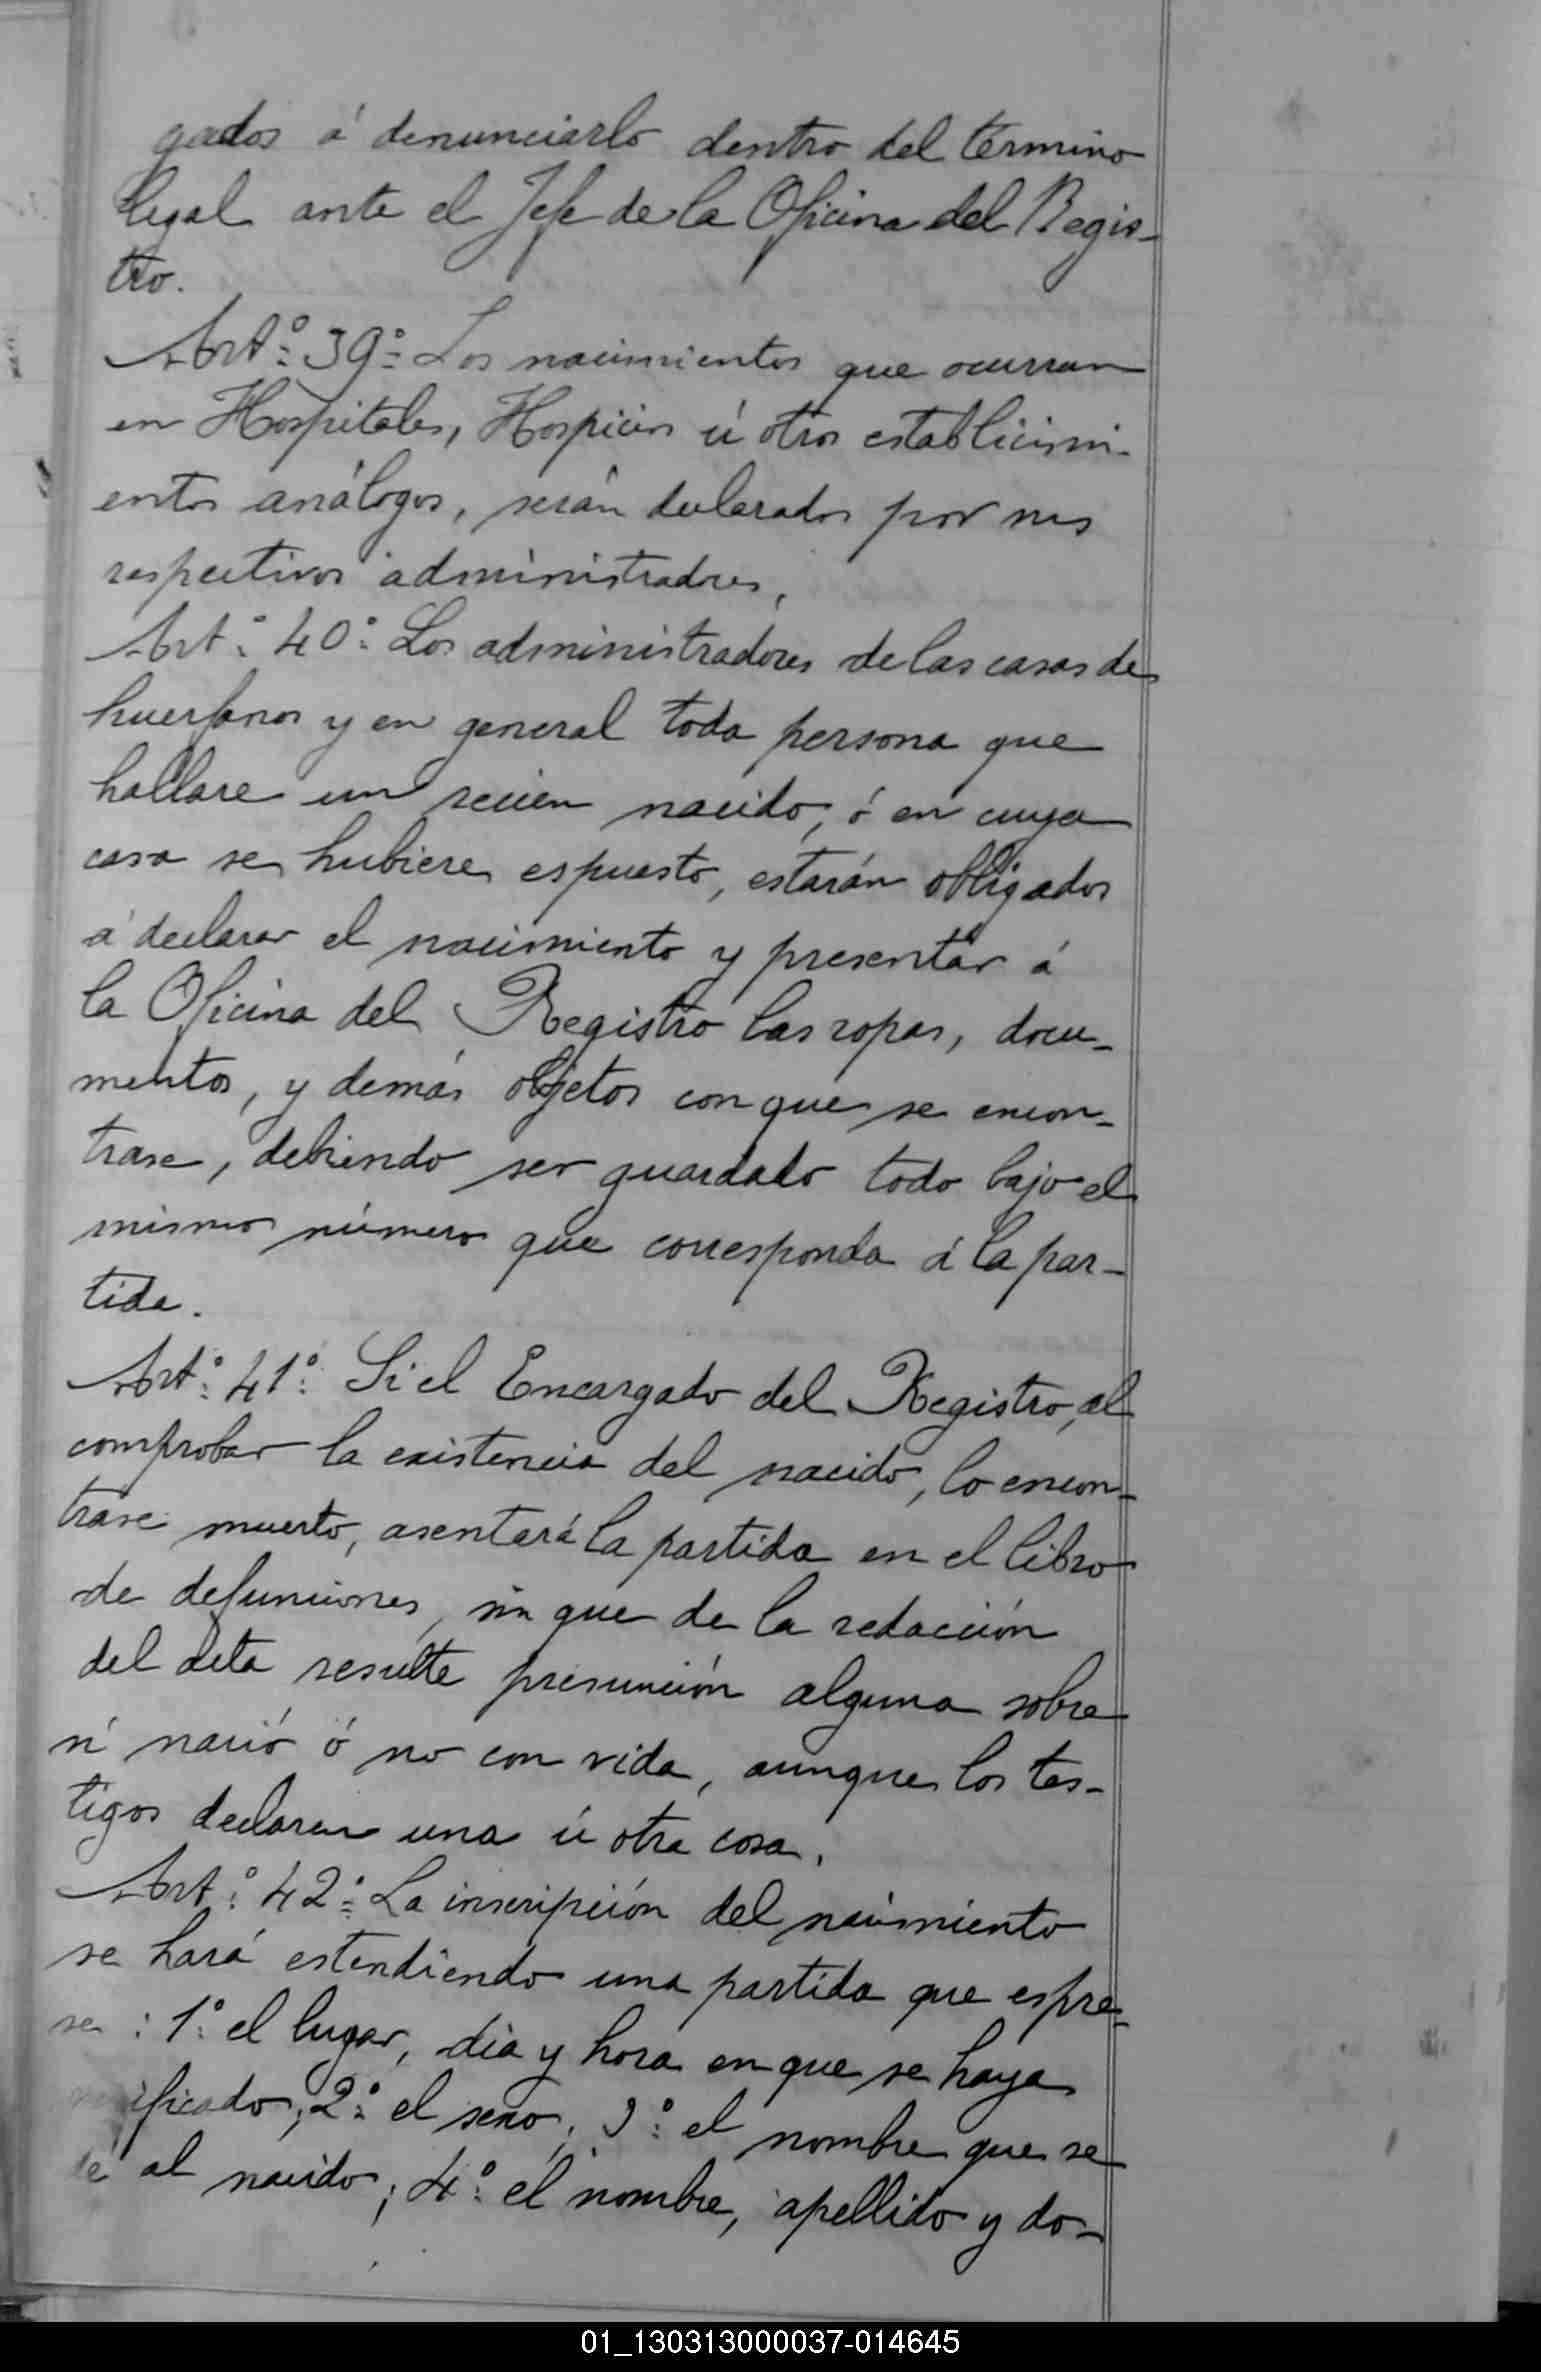 gados á denunciarlo dentro del término
legal ante el Jefe de la Oficina del Regis-
tro.
Art.º 39º Los nacimientos que ocurran
en Hospitales, Hospicios ú otros establicimi-
entos análogos, serán declarados por sus
respectivos administradores.
Art.º 40º Los administradores de las casas de
huerfanos y en general toda persona que
hallare un recien nacido, ó en cuya
casa se hubiere espuesto, estarán obligados
á declarar el nacimiento y presentar á
la Oficina del Registro las ropas, docu-
mentos, y demás objetos con que se encon-
trase, debiendo ser guardado todo bajo el
mismo número que corresponda á la par-
tida.
Art.º 41º Si el Encargado del Registro, al
comprobar la existencia del nacido, lo encon-
trase muerto, asentará la partida en el libro
de defunciones, sin que de la redacción
del acta resulte presunción alguna sobre
si nació ó no con vida, aunque los tes-
tigos declaren una ú otra cosa.
Art.º 42º La inscripción del nacimiento
se hará estendiendo una partida que espre-
se: 1º el lugar, dia y hora en que se haya
ificado; 2º el sexo; 3º el nombre que se
dé al nacido; 4º el nombre, apellido y do-
01_130313000037-014645